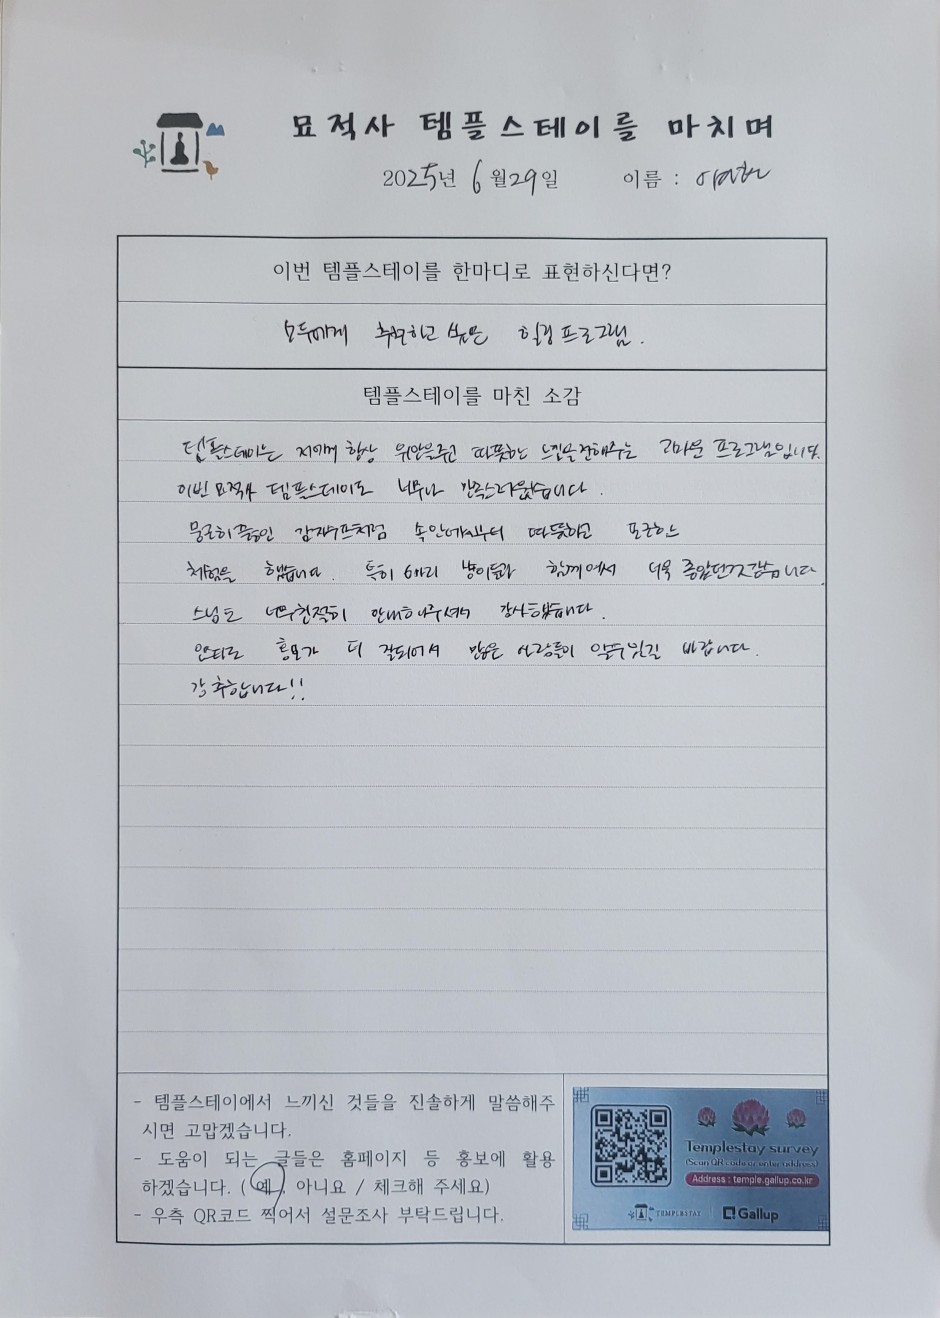 묘적사 템플스테이를 마치며
2025년 6월29일 이름 :
이번 템플스테이를 한마디로 표현하신다면?
모두에게 추천하고 싶은 힐링 프로그램.
템플스테이를 마친 소감
템플스테이는 저에게 항상 위안을주고 따뜻한 느낌을전해주는 고마운 프로그램입니다.
이번 묘적사 템플스테이도 너무나 만족스러웠습니다.
뭉근히끓인 감자수프처럼 속안에서부터 따뜻하고 포근한
체험을 했습니다. 특히 6마리 냥이들과 함께여서 더욱 좋았던것같습니다.
스님도 너무친절히 안내해주셔서 감사했습니다.
홍보가 더 잘되어서 많은 사람들이 알수있길 바랍니다.
강추합니다!!
- 템플스테이에서 느끼신 것들을 진솔하게 말씀해주
시면 고맙겠습니다.
- 도움이 되는 글들은 홈페이지 등 홍보에 활용
하겠습니다. ( 예 , 아니요 / 체크해 주세요)
- 우측 QR코드 찍어서 설문조사 부탁드립니다.
Templestay survey
(Scan QR code or enter address)
Address : temple.gallup.co.kr
TEMPLESTAY Gallup